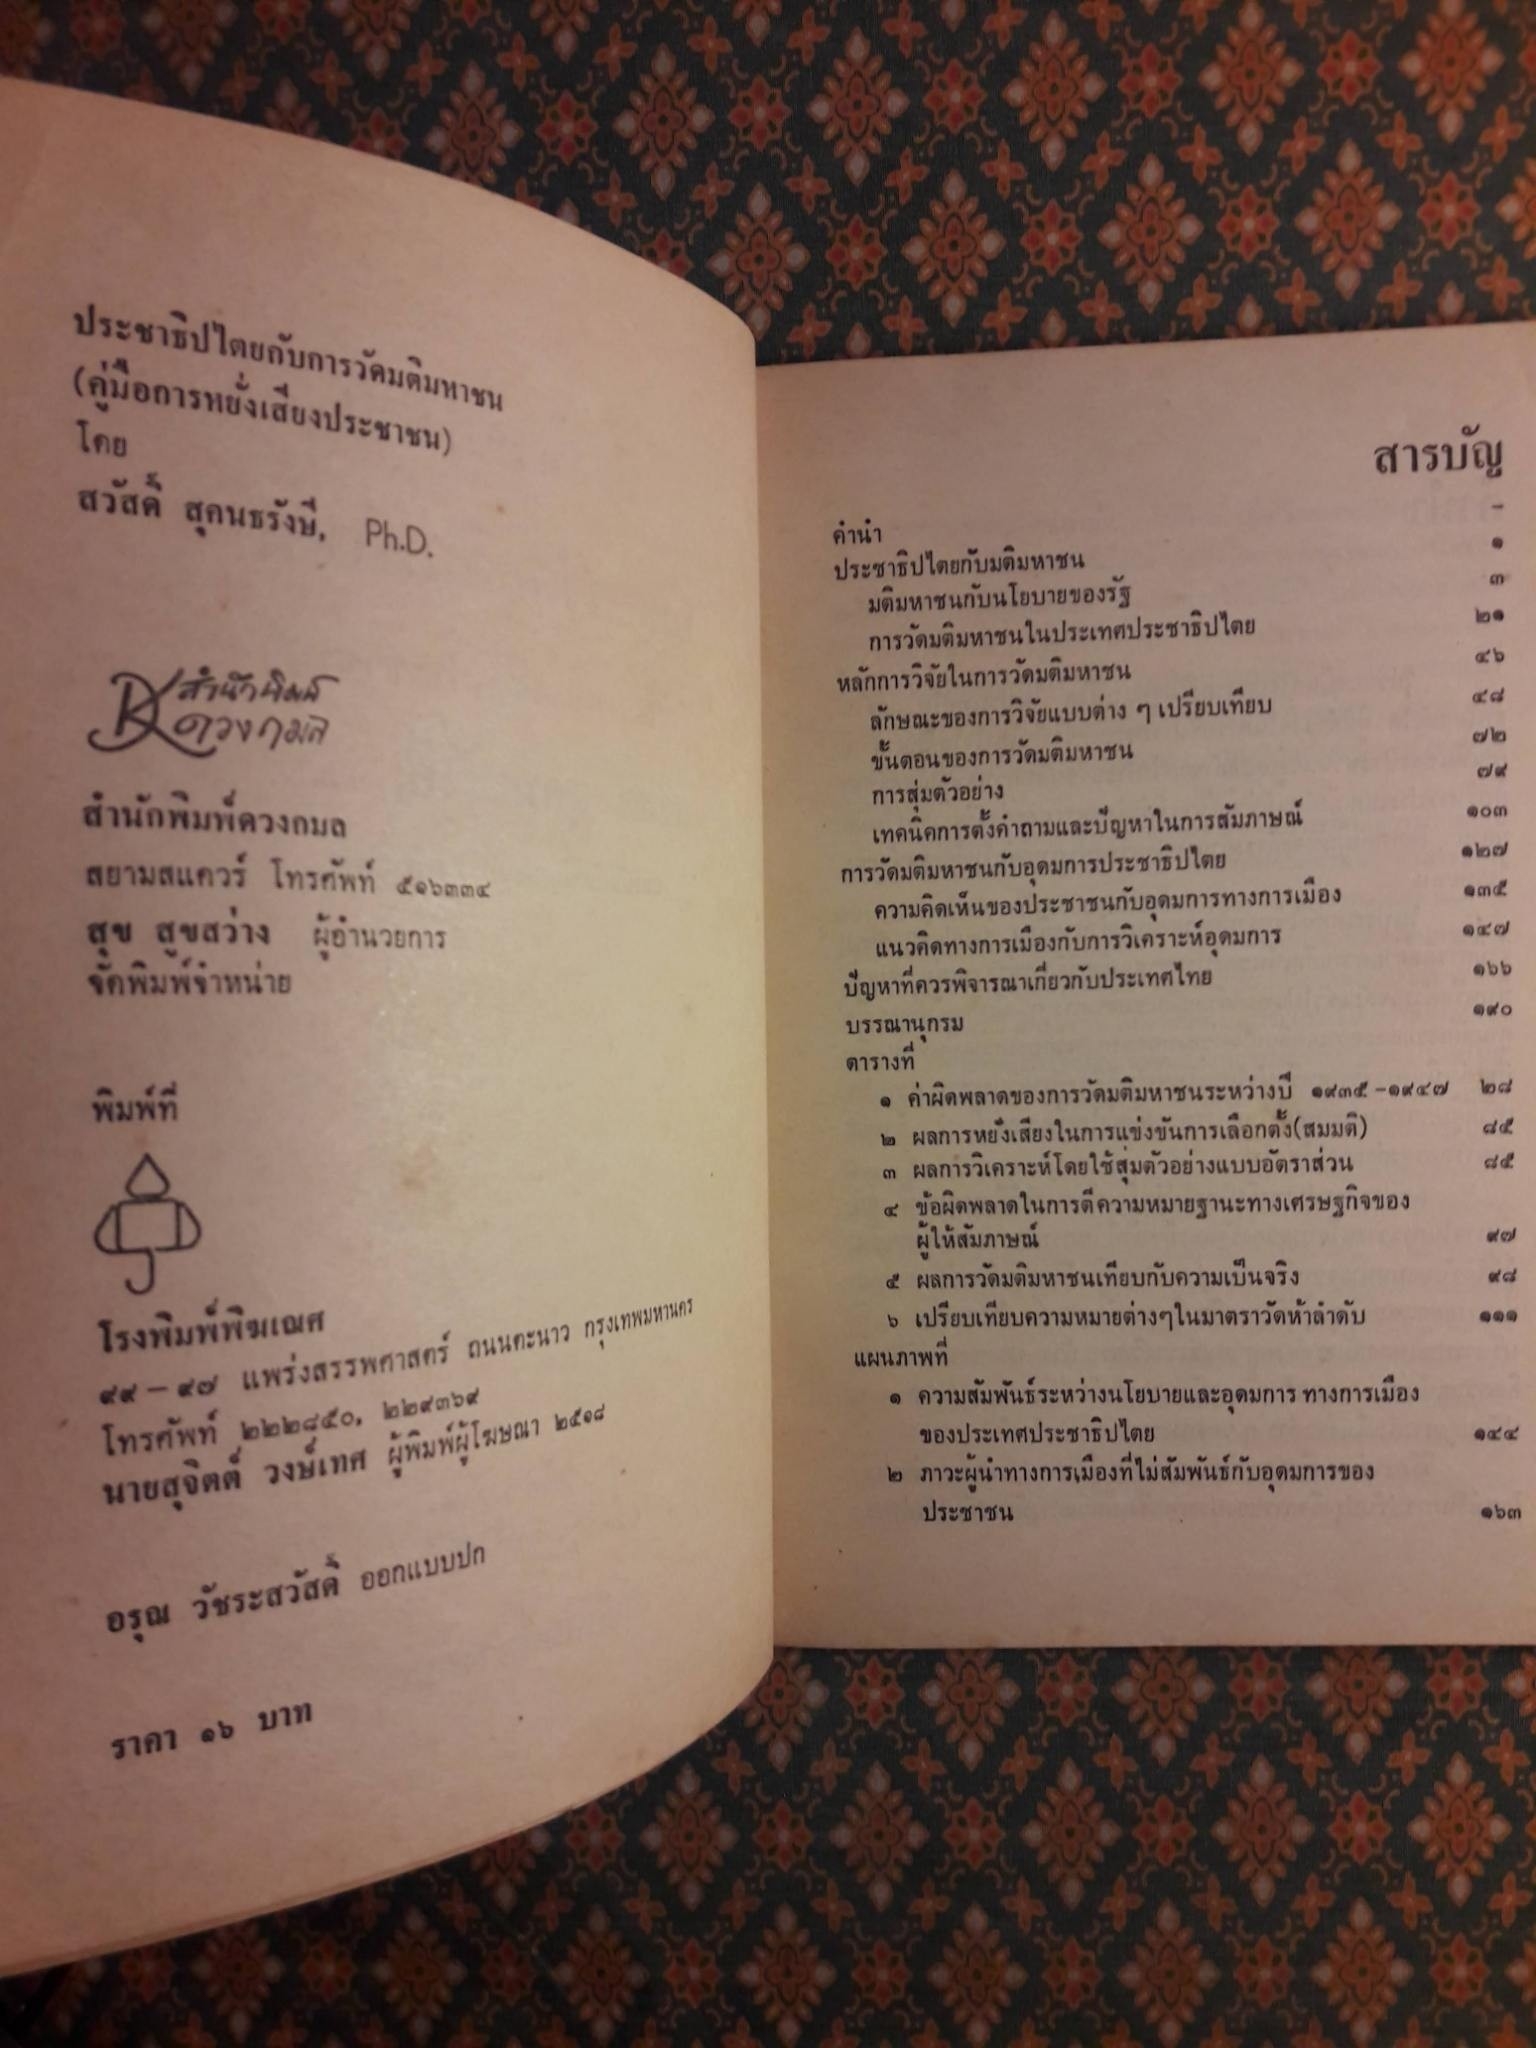 ประชาธิปไตยกับการวัดมติมหาชน
(คู่มือการหยั่งเสียงประชาชน)
โดย
สวัสดิ์ สุคนธรังษี, Ph.D.
สำนักพิมพ์
ดวงกมล
สำนักพิมพ์ดวงกมล
สยามสแควร์ โทรศัพท์ ๕๑๖๓๓๔
สุข สูขสว่าง ผู้อำนวยการ
จัดพิมพ์จำหน่าย
พิมพ์ที่
โรงพิมพ์พิฆเณศ
๙๙ – ๙๗ แพร่งสรรพศาสตร์ ถนนตะนาว กรุงเทพมหานคร
โทรศัพท์ ๒๒๒๘๕๐, ๒๒๙๓๖๙
นายสุจิตต์ วงษ์เทศ ผู้พิมพ์ผู้โฆษณา ๒๕๑๘
อรุณ วัชระสวัสดิ์ ออกแบบปก
ราคา ๑๖ บาท
สารบัญ
คำนำ –
ประชาธิปไตยกับมติมหาชน ๑
มติมหาชนกับนโยบายของรัฐ ๓
การวัดมติมหาชนในประเทศประชาธิปไตย ๒๑
หลักการวิจัยในการวัดมติมหาชน ๔๖
ลักษณะของการวิจัยแบบต่าง ๆ เปรียบเทียบ ๔๘
ขั้นตอนของการวัดมติมหาชน ๗๒
การสุ่มตัวอย่าง ๗๙
เทคนิคการตั้งคำถามและปัญหาในการสัมภาษณ์ ๑๐๓
การวัดมติมหาชนกับอุดมการประชาธิปไตย ๑๒๗
ความคิดเห็นของประชาชนกับอุดมการทางการเมือง ๑๓๕
แนวคิดทางการเมืองกับการวิเคราะห์อุดมการ ๑๔๗
ปัญหาที่ควรพิจารณาเกี่ยวกับประเทศไทย ๑๖๖
บรรณานุกรม ๑๙๐
ตารางที่
๑ ค่าผิดพลาดของการวัดมติมหาชนระหว่างปี ๑๙๓๕ – ๑๙๔๗ ๒๘
๒ ผลการหยั่งเสียงในการแข่งขันการเลือกตั้ง(สมมติ) ๘๕
๓ ผลการวิเคราะห์โดยใช้สุ่มตัวอย่างแบบอัตราส่วน ๘๕
๔ ข้อผิดพลาดในการตีความหมายฐานะทางเศรษฐกิจของ
ผู้ให้สัมภาษณ์ ๙๗
๕ ผลการวัดมติมหาชนเทียบกับความเป็นจริง ๙๘
๖ เปรียบเทียบความหมายต่างๆในมาตราวัดห้าลำดับ ๑๑๑
แผนภาพที่
๑ ความสัมพันธ์ระหว่างนโยบายและอุดมการ ทางการเมือง
ของประเทศประชาธิปไตย ๑๔๔
๒ ภาวะผู้นำทางการเมืองที่ไม่สัมพันธ์กับอุดมการของ
ประชาชน ๑๖๓